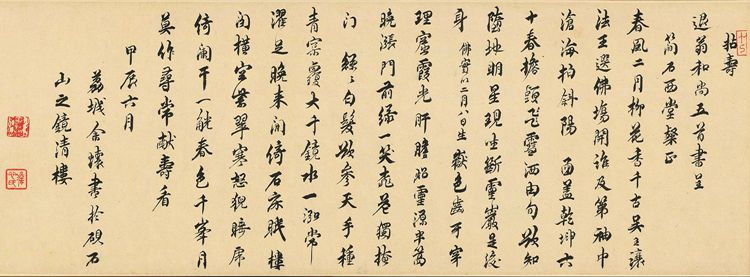 拈壽
退翁和尚五首書呈
簡石西堂粲正
春風二月柳花香千古吳王讓
法王選佛場開誰及第袖中
滄海拍斜陽 函蓋乾坤六
十春擔頭風雪洒由旬欲知
墮地明星現坐斷靈巖是後
身 佛實以二月八日生 嶽色幽可窄
理窟霞光肝膽照靈源半篙
晚漲門前綠一笑飛花獨掩
門 鬖鬖白髮欲參天手種
青宗覆大千鏡水一泓常
濯足晚來閒倚石床眠 樓
閣橫空叢翠寒怒猊踏席
倚闌干一瓻春色千峯月
莫作尋常獻壽看
甲辰六月
荔城余懷書於硯石
山之鏡清樓